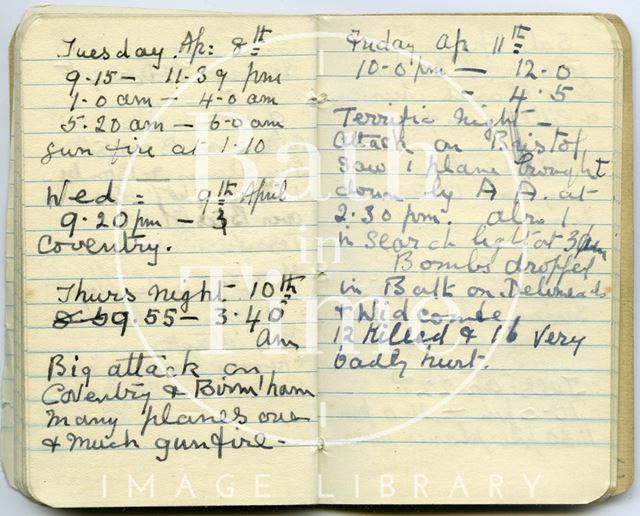 Tuesday. Ap: 8th
9.15 - 11.39 pm
1.0 am - 4.0 am
5.20 am - 6.0 am
gun fire at 1.10
Wed = 9th April
9.20 pm - 3
Coventry.
Thurs night 10th
9.55 - 3.40
am
Big attack on
Coventry & Birm'ham
many planes over
& much gunfire -
Friday Ap 11th
10.0 pm - 12.0
- 4.5
Terrific night -
attack on Bristol,
saw 1 plane brought
down by A A. at
2.30 pm. also 1
in search light at 3 am
Bombs dropped
in Bath on Dolemeads
& Widcombe,
12 Killed & 16 very
badly hurt.
Bath
in
Time
IMAGE LIBRARY